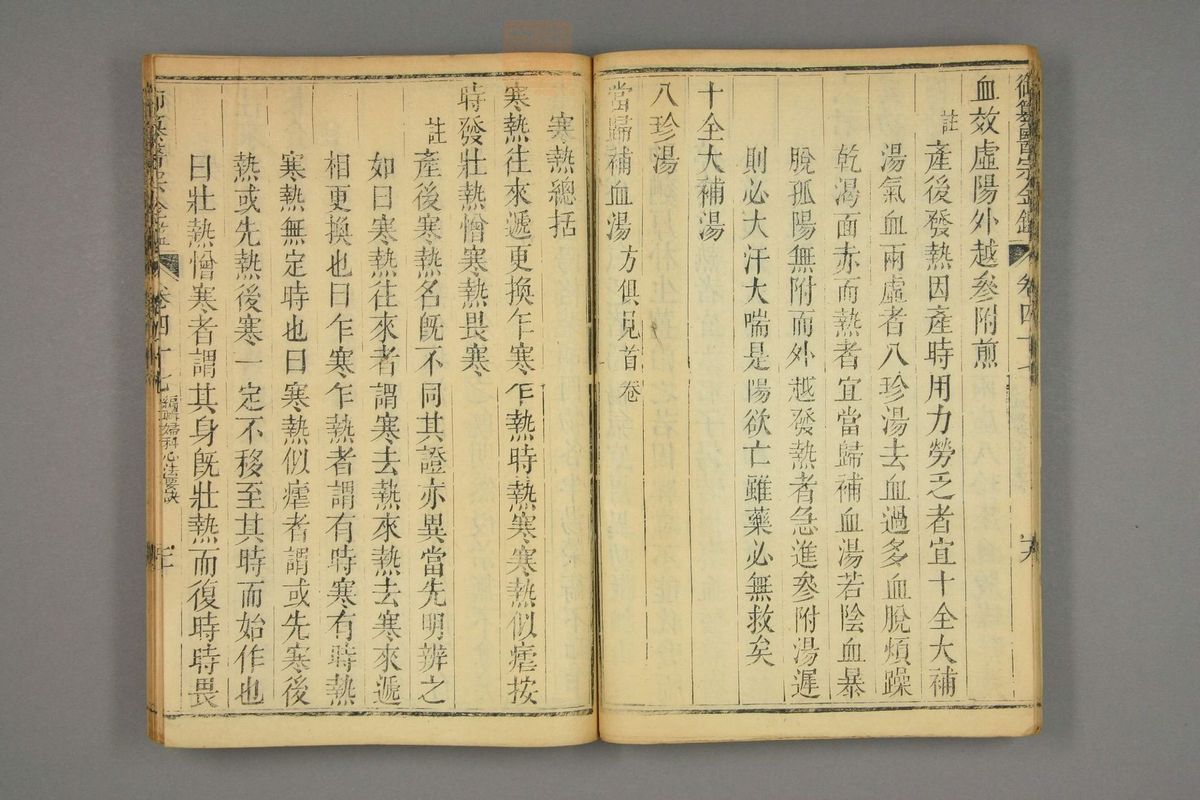 御纂醫宗金鑑 卷四十七
血效虛陽外越參附煎
註產後發熱因產時用力勞乏者宜十全大補
湯氣血兩虛者八珍湯去血過多血脫煩躁
乾渴面赤而熱者宜當歸補血湯若陰血暴
脫孤陽無附而外越發熱者急進參附湯遲
則必大汗大喘是陽欲亡雖藥必無救矣
十全大補湯
八珍湯
當歸補血湯 方俱見首卷
寒熱總括
寒熱往來遞更換乍寒乍熱時熱寒寒熱似瘧按
時發壯熱憎寒熱畏寒
註產後寒熱名既不同其證亦異當先明辨之
如曰寒熱往來者謂寒去熱來熱去寒來遞
相更換也曰乍寒乍熱者謂有時寒有時熱
寒熱無定時也曰寒熱似瘧者謂或先寒後
熱或先熱後寒一定不移至其時而始作也
曰壯熱憎寒者謂其身既壯熱而復時時畏
御纂醫宗金鑑 卷四十七 編輯婦科心法要訣